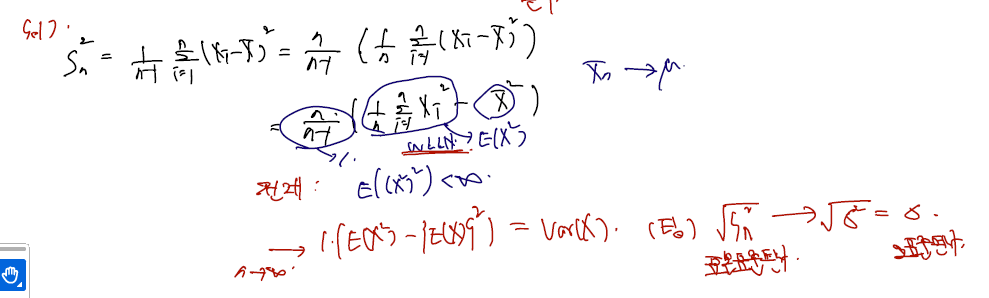 Sol).
S_n^2 = \frac{1}{n-1} \sum_{i=1}^{n} (X_i - \bar{X})^2 = \frac{n}{n-1} ( \frac{1}{n} \sum_{i=1}^{n} (X_i - \bar{X})^2 )
\bar{X}_n → μ.
= \frac{n}{n-1} ( \frac{1}{n} \sum_{i=1}^{n} X_i^2 - \bar{X}^2 )
→ 1. WLLN. → E(X^2)
전제 : E((X^2)^2) < ∞.
→ 1·(E(X^2) - {E(X)}^2) = Var(X). \sqrt{S_n^2} → \sqrt{σ^2} = σ.
n→∞. 표본표준편차. 모표준편차.